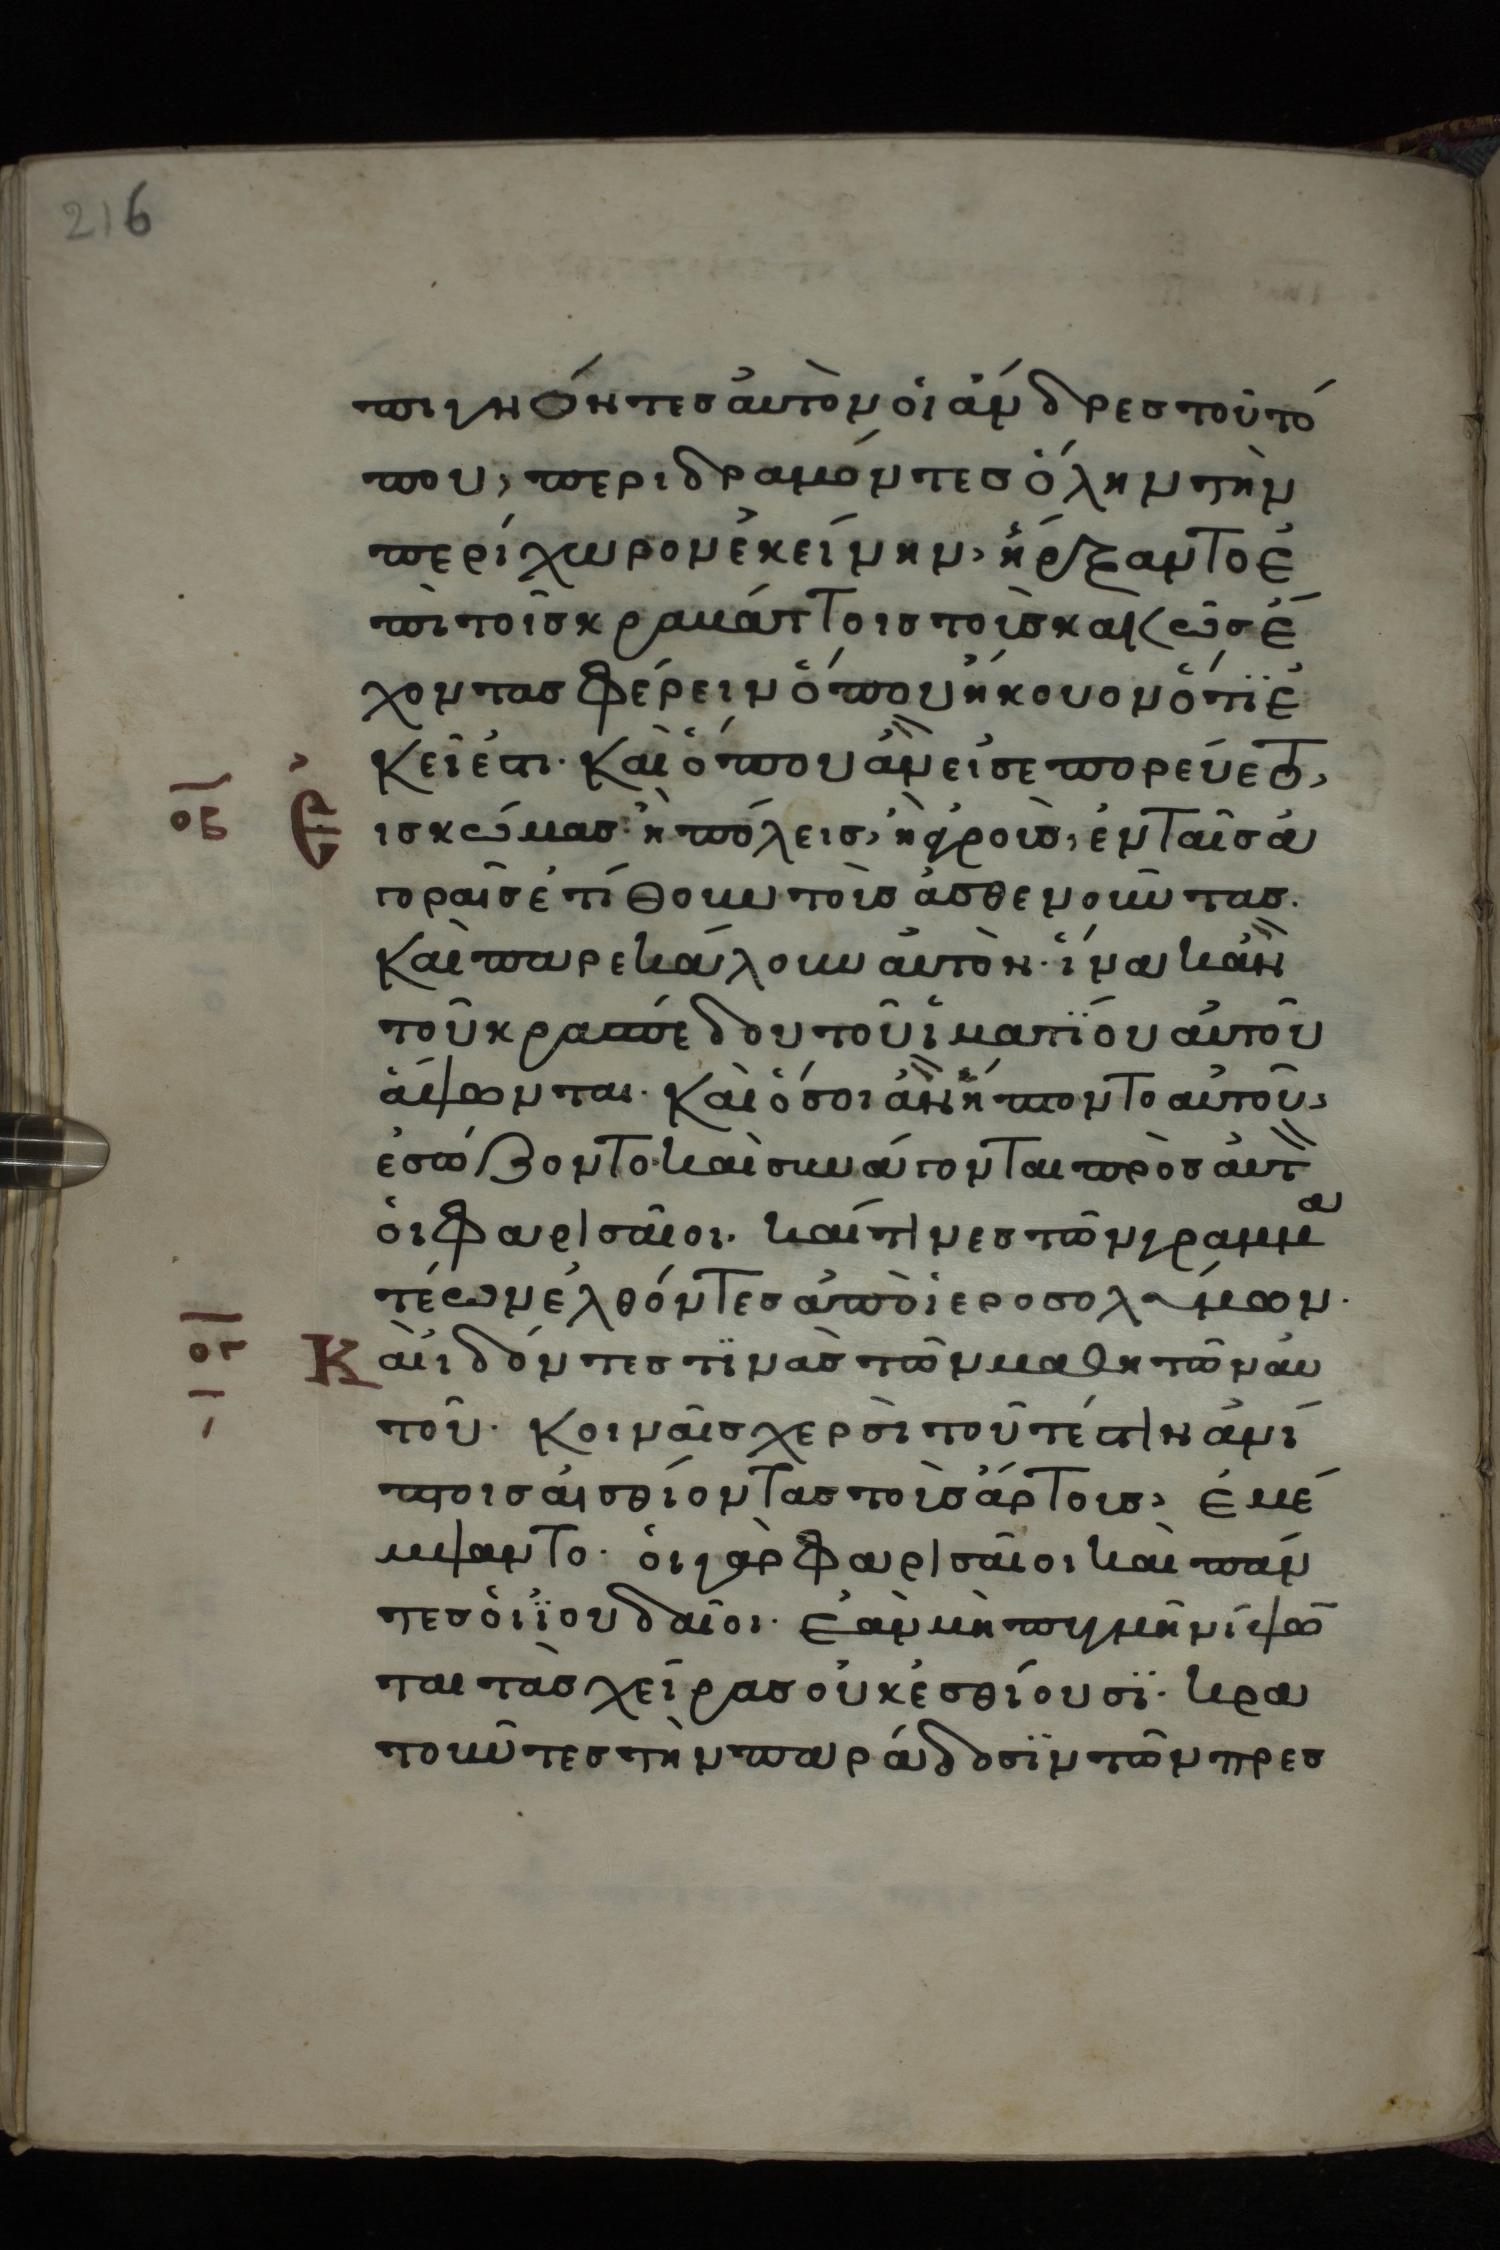 216
πιγνόντες αὐτὸν οἱ ἄνδρες τοῦ τό
που, περιδραμόντες ὅλην τὴν
περίχωρον ἐκείνην, ἤρξαντο ἐ
πὶ τοῖς κραμάττοις τοὺς κακῶς ἔ
χοντας φέρειν ὅπου ἤκουον ὅτι ἐ
κεῖ ἐστι. Καὶ ὅπου ἂν εἰσεπορεύετο,
οβ Εἰς κώμας ἢ πόλεις, ἢ ἀγροὺς, ἐν ταῖς ἀ
γοραῖς ἐτίθουν τοὺς ἀσθενοῦντας.
Καὶ παρεκάλουν αὐτὸν. ἵνα κἂν
τοῦ κρασπέδου τοῦ ἱματίου αὐτοῦ
ἅψωνται. Καὶ ὅσοι ἂν ἥπτοντο αὐτοῦ,
ἐσώζοντο. καὶ συνάγονται πρὸς αὐτ
οἱ Φαρισαῖοι. καί τινες τῶν γραμμα
τέων ἐλθόντες ἀπὸ ἱεροσολύμων.
ογ Καὶ ἰδόντες τινὰς τῶν μαθητῶν αὐ
ι τοῦ. Κοιναῖς χερσὶ τοῦτέστιν ἀνί
πτοις ἐσθίοντας τοὺς ἄρτους, ἐμέ
μψαντο. οἱ γὰρ Φαρισαῖοι καὶ πάν
τες οἱ ἰουδαῖοι. ἐὰν μὴ πυγμῇ νίψω
ται τὰς χεῖρας οὐκ ἐσθίουσι. κρα
τοῦντες τὴν παράδοσιν τῶν πρεσ